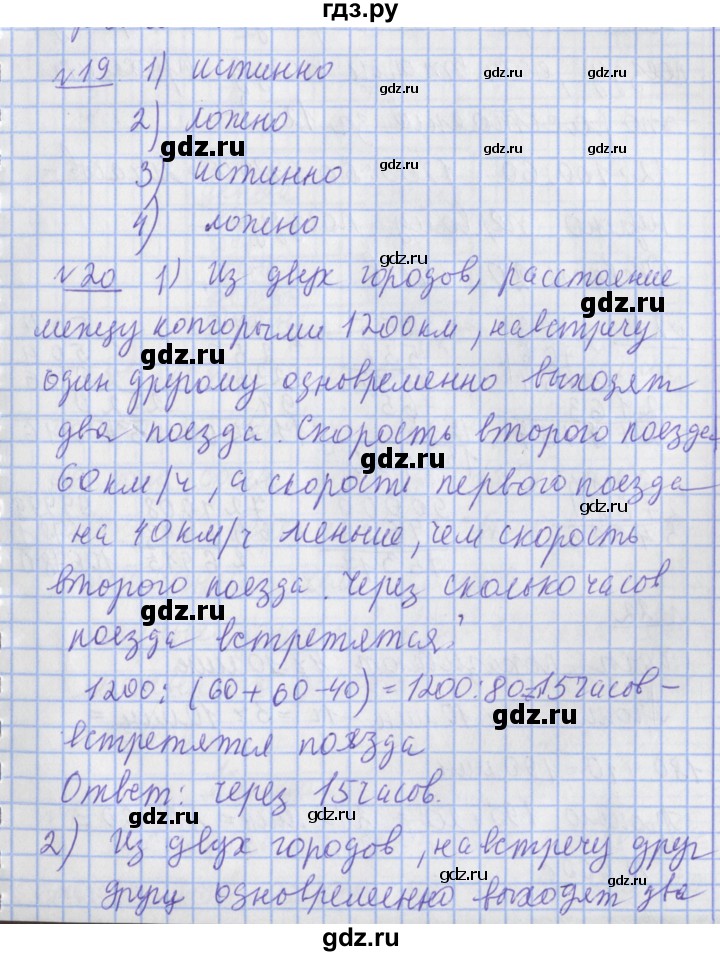 гдз.ру
№19 1) истинно
2) ложно
3) истинно
4) ложно
№20 1) Из двух городов, расстояние
между которыми 1200км, навстречу
один другому одновременно выходят
два поезда. Скорость второго поезда
60км/ч, а скорости первого поезда
на 40км/ч меньше, чем скорость
второго поезда. Через сколько часов
поезда встретятся?
1200: (60+60-40)=1200:80=15часов -
встретятся поезда
Ответ: через 15часов.
2) Из двух городов, навстречу друг
другу одновременно выходят два
gdz.ru